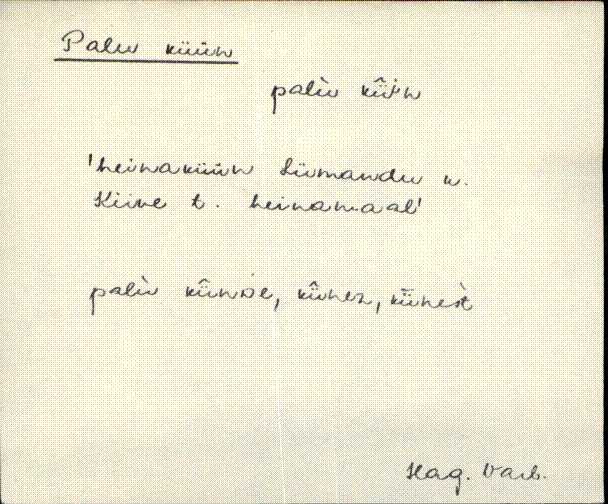 Palu küün
palu̬ kǖn
'heinaküün Liimandu k.
Kiive t. heinamaal'
palu̬ kǖnɒe, kǖnez, kǖnest
Hag. Varb.